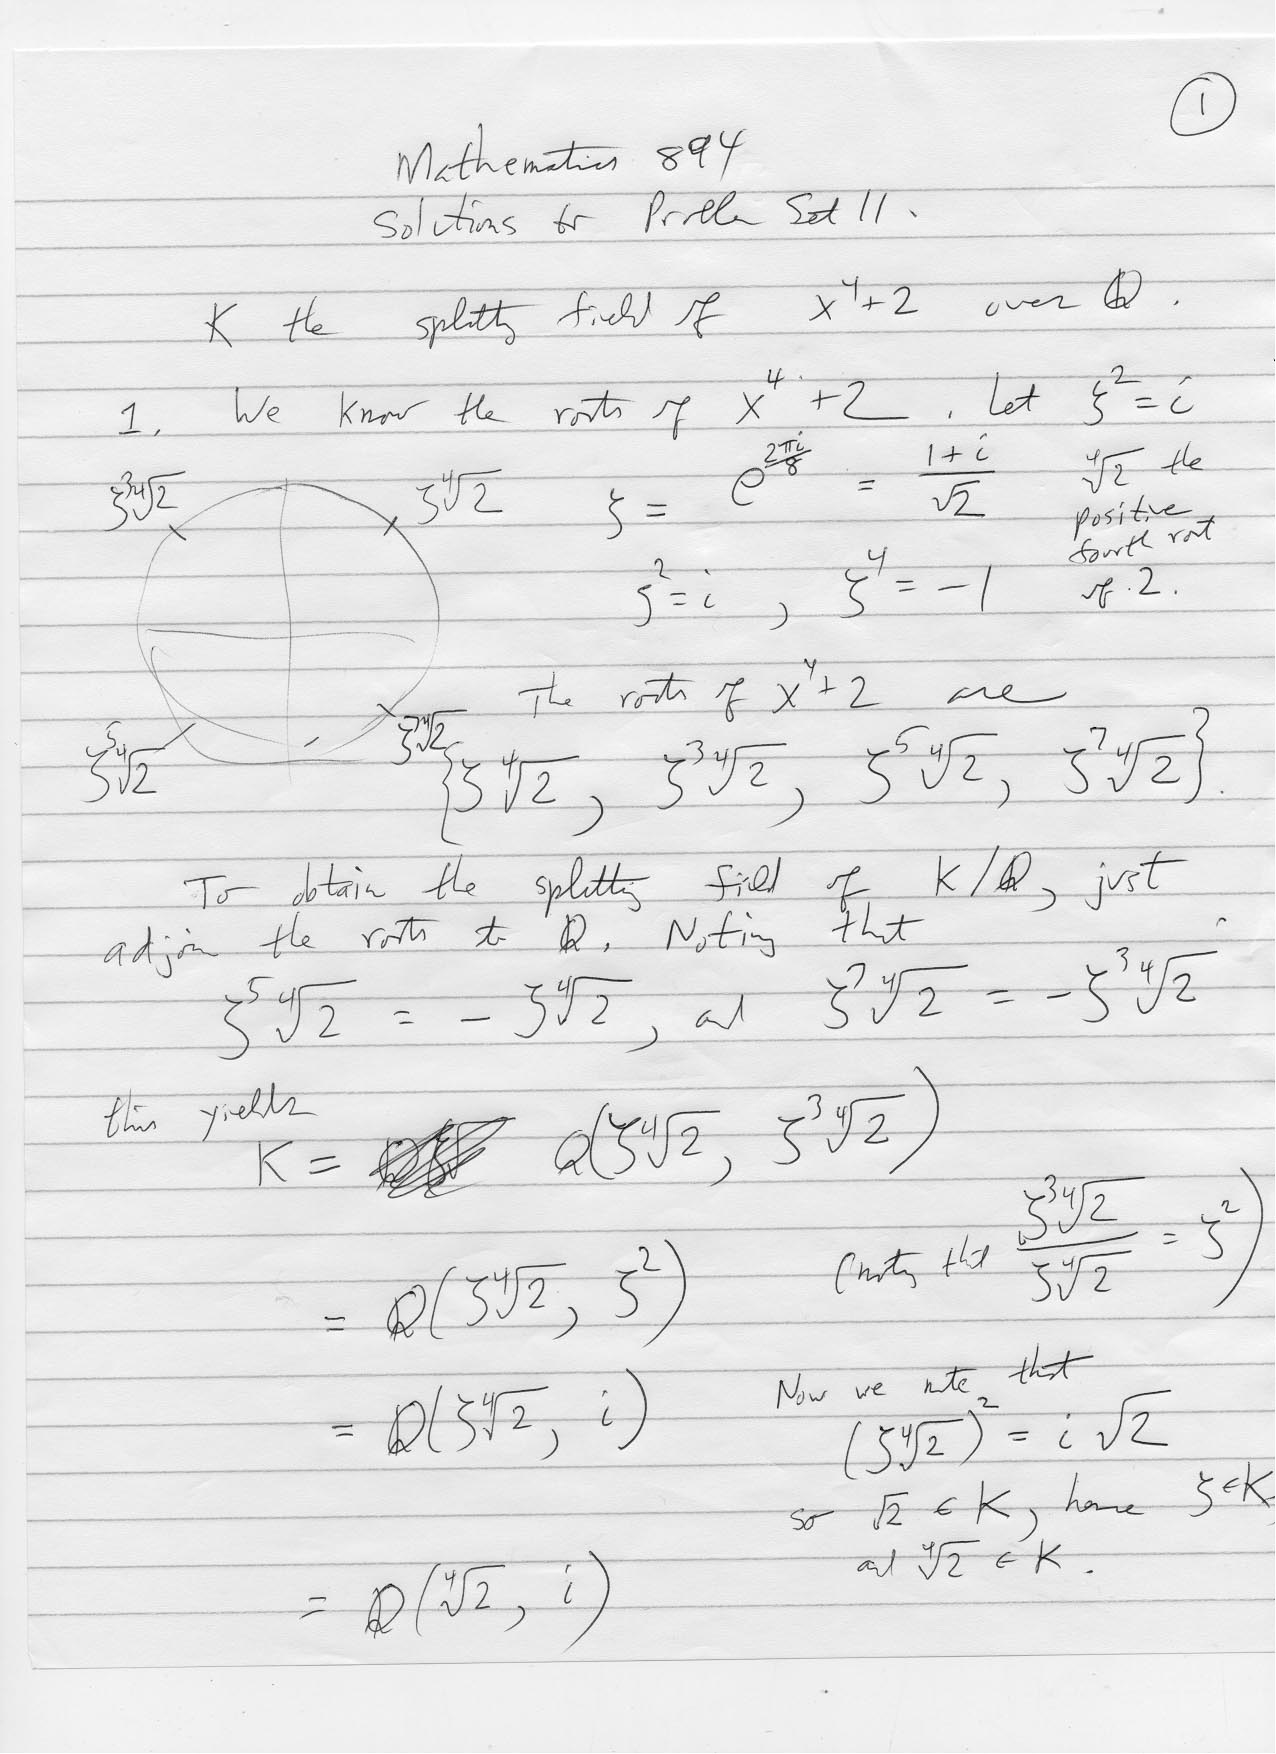 1
Mathematics 894
Solutions to Problem Set 11.
K the splitting field of x⁴+2 over ℚ.
1. We know the roots of x⁴+2. Let ζ²=i
ζ = e^{2πi/8} = (1+i)/√2
∜2 the
positive
fourth root
of 2.
ζ²=i, ζ⁴=-1
ζ³∜2
ζ∜2
ζ⁵∜2
ζ⁷∜2
The roots of x⁴+2 are
{ζ∜2, ζ³∜2, ζ⁵∜2, ζ⁷∜2}.
To obtain the splitting field of K/ℚ, just
adjoin the roots to ℚ. Noting that
ζ⁵∜2 = -ζ∜2, and ζ⁷∜2 = -ζ³∜2
this yields
K = ℚ(ζ∜2, ζ³∜2)
= ℚ(ζ∜2, ζ²) (noting that ζ³∜2/ζ∜2 = ζ²)
= ℚ(ζ∜2, i)
Now we note that
(ζ∜2)² = i√2
so √2 ∈ K, hence ζ∈K,
and ∜2 ∈ K.
= ℚ(∜2, i)